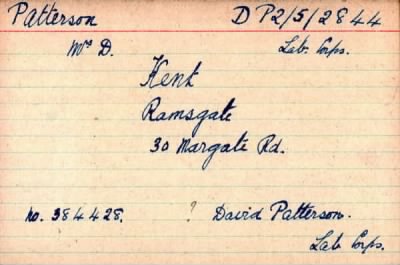 Patterson D P2/5/2844
Mrs D. Lab. Corps.
Kent
Ramsgate
30 Margate Rd.
no. 384428. ? David Patterson.
Lab Corps.